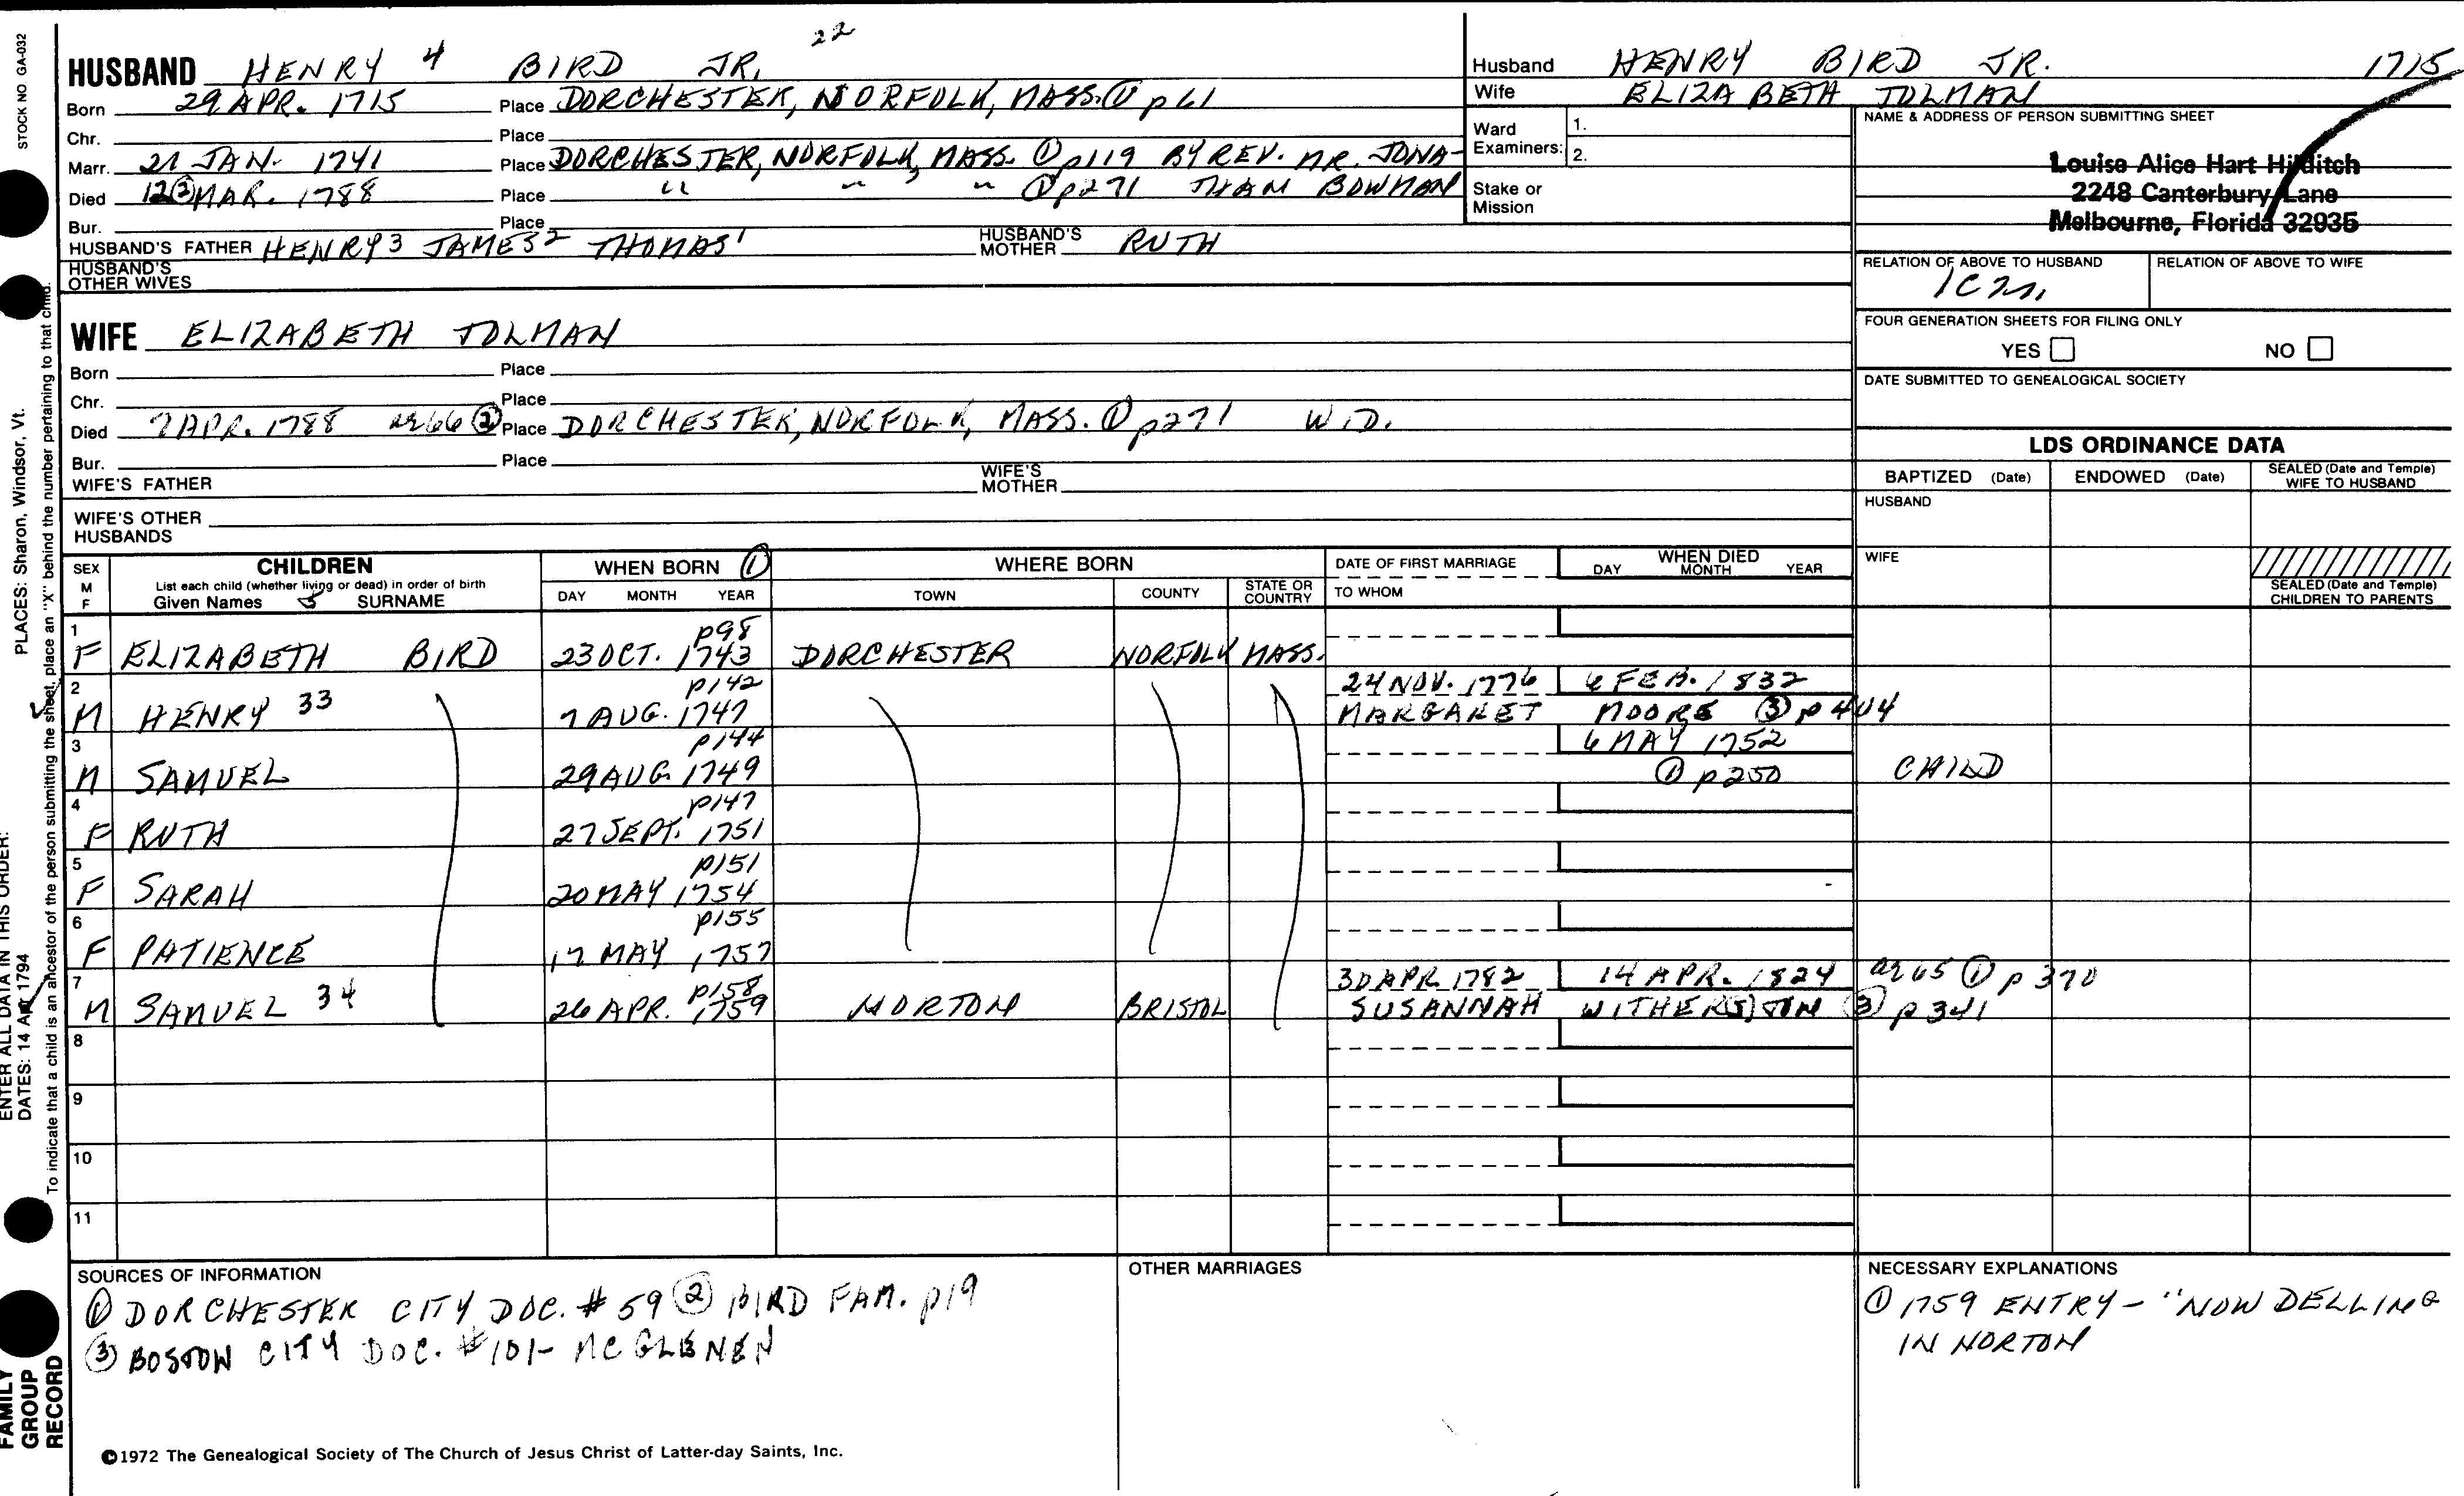 STOCK NO. GA-032
22
HUSBAND HENRY 4 BIRD JR.
Born 29 APR. 1715 Place DORCHESTER, NORFOLK, MASS. ① p 61
Chr. Place
Marr. 21 JAN. 1741 Place DORCHESTER, NORFOLK, MASS. ① p119 BY REV. MR. JONA-
Died 12 ② MAR. 1788 Place " " " ① p271 THAN BOWMAN
Bur. Place
HUSBAND'S FATHER HENRY 3 JAMES 2 THOMAS 1 HUSBAND'S MOTHER RUTH
HUSBAND'S
OTHER WIVES
Husband HENRY BIRD JR. 1715
Wife ELIZABETH TOLMAN
Ward
Examiners: 1.
2.
Stake or
Mission
NAME & ADDRESS OF PERSON SUBMITTING SHEET
Louise Alice Hart Hilditch
2248 Canterbury Lane
Melbourne, Florida 32935
RELATION OF ABOVE TO HUSBAND RELATION OF ABOVE TO WIFE
FOUR GENERATION SHEETS FOR FILING ONLY
YES NO
DATE SUBMITTED TO GENEALOGICAL SOCIETY
WIFE ELIZABETH TOLMAN
Born Place
Chr. Place
Died 7 APR. 1788 ae 66 ② Place DORCHESTER, NORFOLK, MASS. ① p271 WID.
Bur. Place
WIFE'S FATHER WIFE'S MOTHER
WIFE'S OTHER
HUSBANDS
LDS ORDINANCE DATA
BAPTIZED (Date) ENDOWED (Date) SEALED (Date and Temple) WIFE TO HUSBAND
HUSBAND
WIFE
SEALED (Date and Temple)
CHILDREN TO PARENTS
SEX
M
F
CHILDREN
List each child (whether living or dead) in order of birth
Given Names 5 SURNAME
WHEN BORN ①
DAY MONTH YEAR
WHERE BORN
TOWN COUNTY STATE OR COUNTRY
DATE OF FIRST MARRIAGE
TO WHOM
WHEN DIED
DAY MONTH YEAR
1 p98
F ELIZABETH BIRD 23 OCT. 1743 DORCHESTER NORFOLK MASS.
2 p142 24 NOV. 1776 6 FEB. 1832
M HENRY 33 7 AUG. 1747 MARGARET MOORE ③ p 404
3 p144 6 MAY 1752
M SAMUEL 29 AUG. 1749 ① p250 CHILD
4 p147
F RUTH 27 SEPT. 1751
5 p151
F SARAH 20 MAY 1754
6 p155
F PATIENCE 17 MAY 1757
7 p158 30 APR. 1782 14 APR. 1824 ae 65 ① p 370
M SAMUEL 34 26 APR. 1759 NORTON BRISTOL SUSANNAH WITHER(S)TON ③ p 341
8
9
10
11
SOURCES OF INFORMATION
① DORCHESTER CITY DOC. # 59 ② BIRD FAM. p19
③ BOSTON CITY DOC. # 101- MCGLENEN
OTHER MARRIAGES
NECESSARY EXPLANATIONS
① 1759 ENTRY - "NOW DELLING
IN NORTON
©1972 The Genealogical Society of The Church of Jesus Christ of Latter-day Saints, Inc.
PLACES: Sharon, Windsor, Vt.
To indicate that a child is an ancestor of the person submitting the sheet, place an "X" behind the number pertaining to that child.
ENTER ALL DATA IN THIS ORDER:
DATES: 14 Apr 1794
FAMILY
GROUP
RECORD